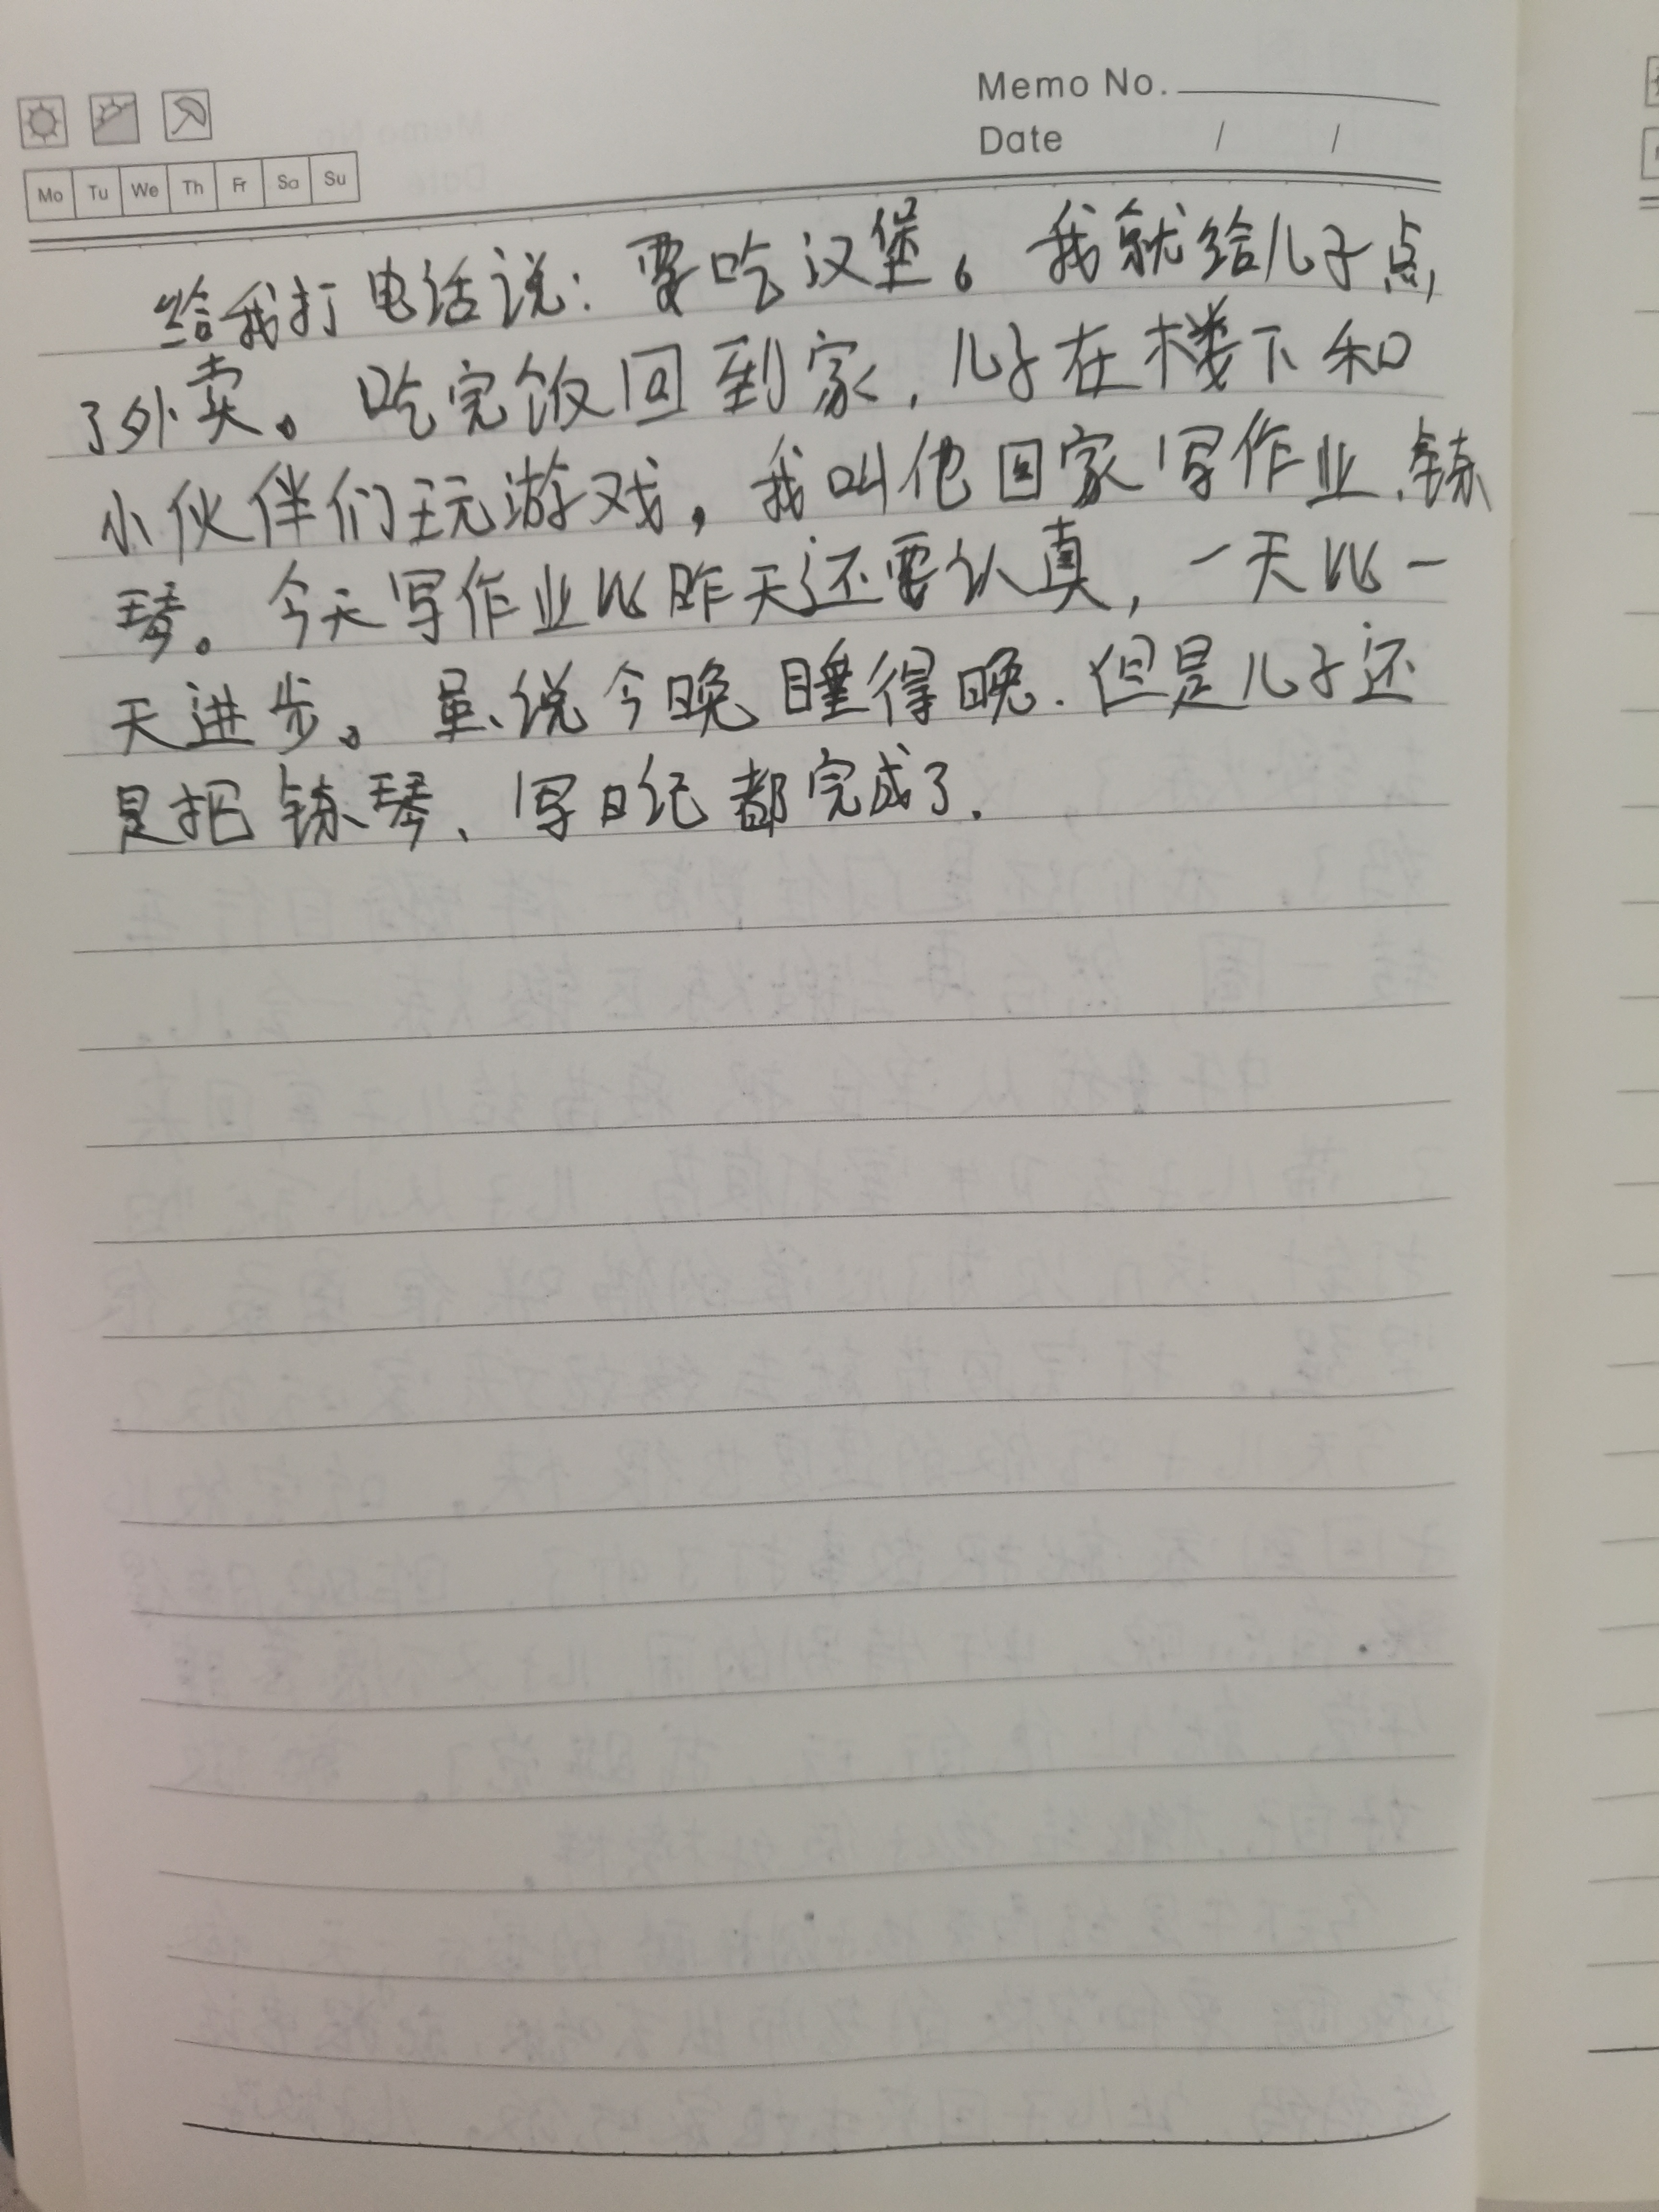 Memo No.
Date / /
Mo Tu We Th Fr Sa Su
给我打电话说：要吃汉堡。我就给儿子点
了外卖。吃完饭回到家，儿子在楼下和
小伙伴们玩游戏，我叫他回家写作业、练
琴。今天写作业比昨天还要认真，一天比一
天进步。虽说今晚睡得晚.但是儿子还
是把练琴、写日记都完成了.